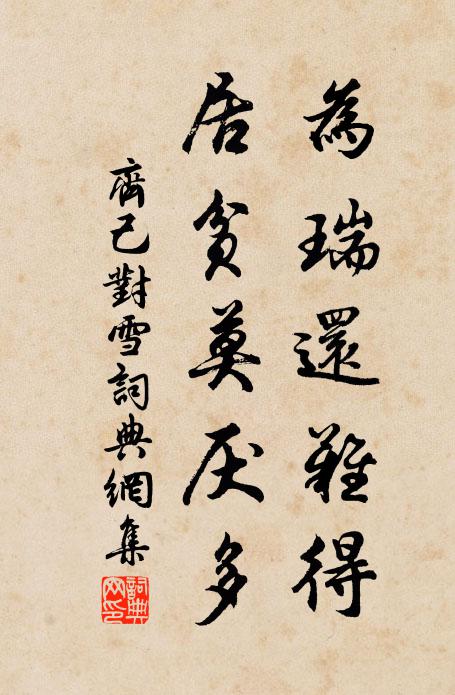 為瑞還難得
居貧莫厌多
齊己對雪詞典網集
詞典網印